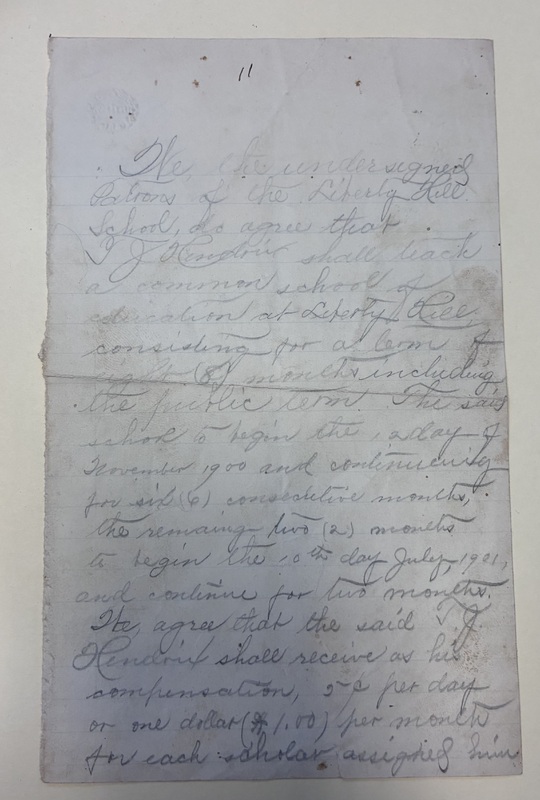 11
We, the undersigned
Patrons of the Liberty Hill
School, do agree that
J Hendrix shall teach
a common school of
education at Liberty Hill,
consisting for a term of
eight (8) months including
the public term. The said
school to begin the 12 day of
November 1900 and continueing
for six (6) consecutive months,
the remaing two (2) months
to begin the 10th day July, 1901,
and continue for two months.
We, agree that the said J.
Hendrix shall receive as his
compensation, 5¢ per day
or one dollar ($1.00) per month
for each scholar assigned him